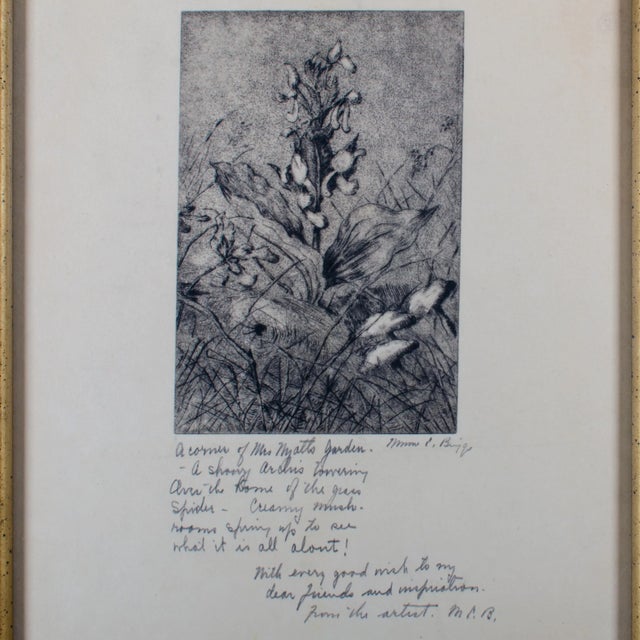 A corner of Mrs Myatts Garden.
- A showy Orchis towering
Over the Home of the grass
Spider - Creamy mush-
rooms spring up to see
what it is all about!
With every good wish to my
dear friends and inspiration.
from the artist. M.C.B.